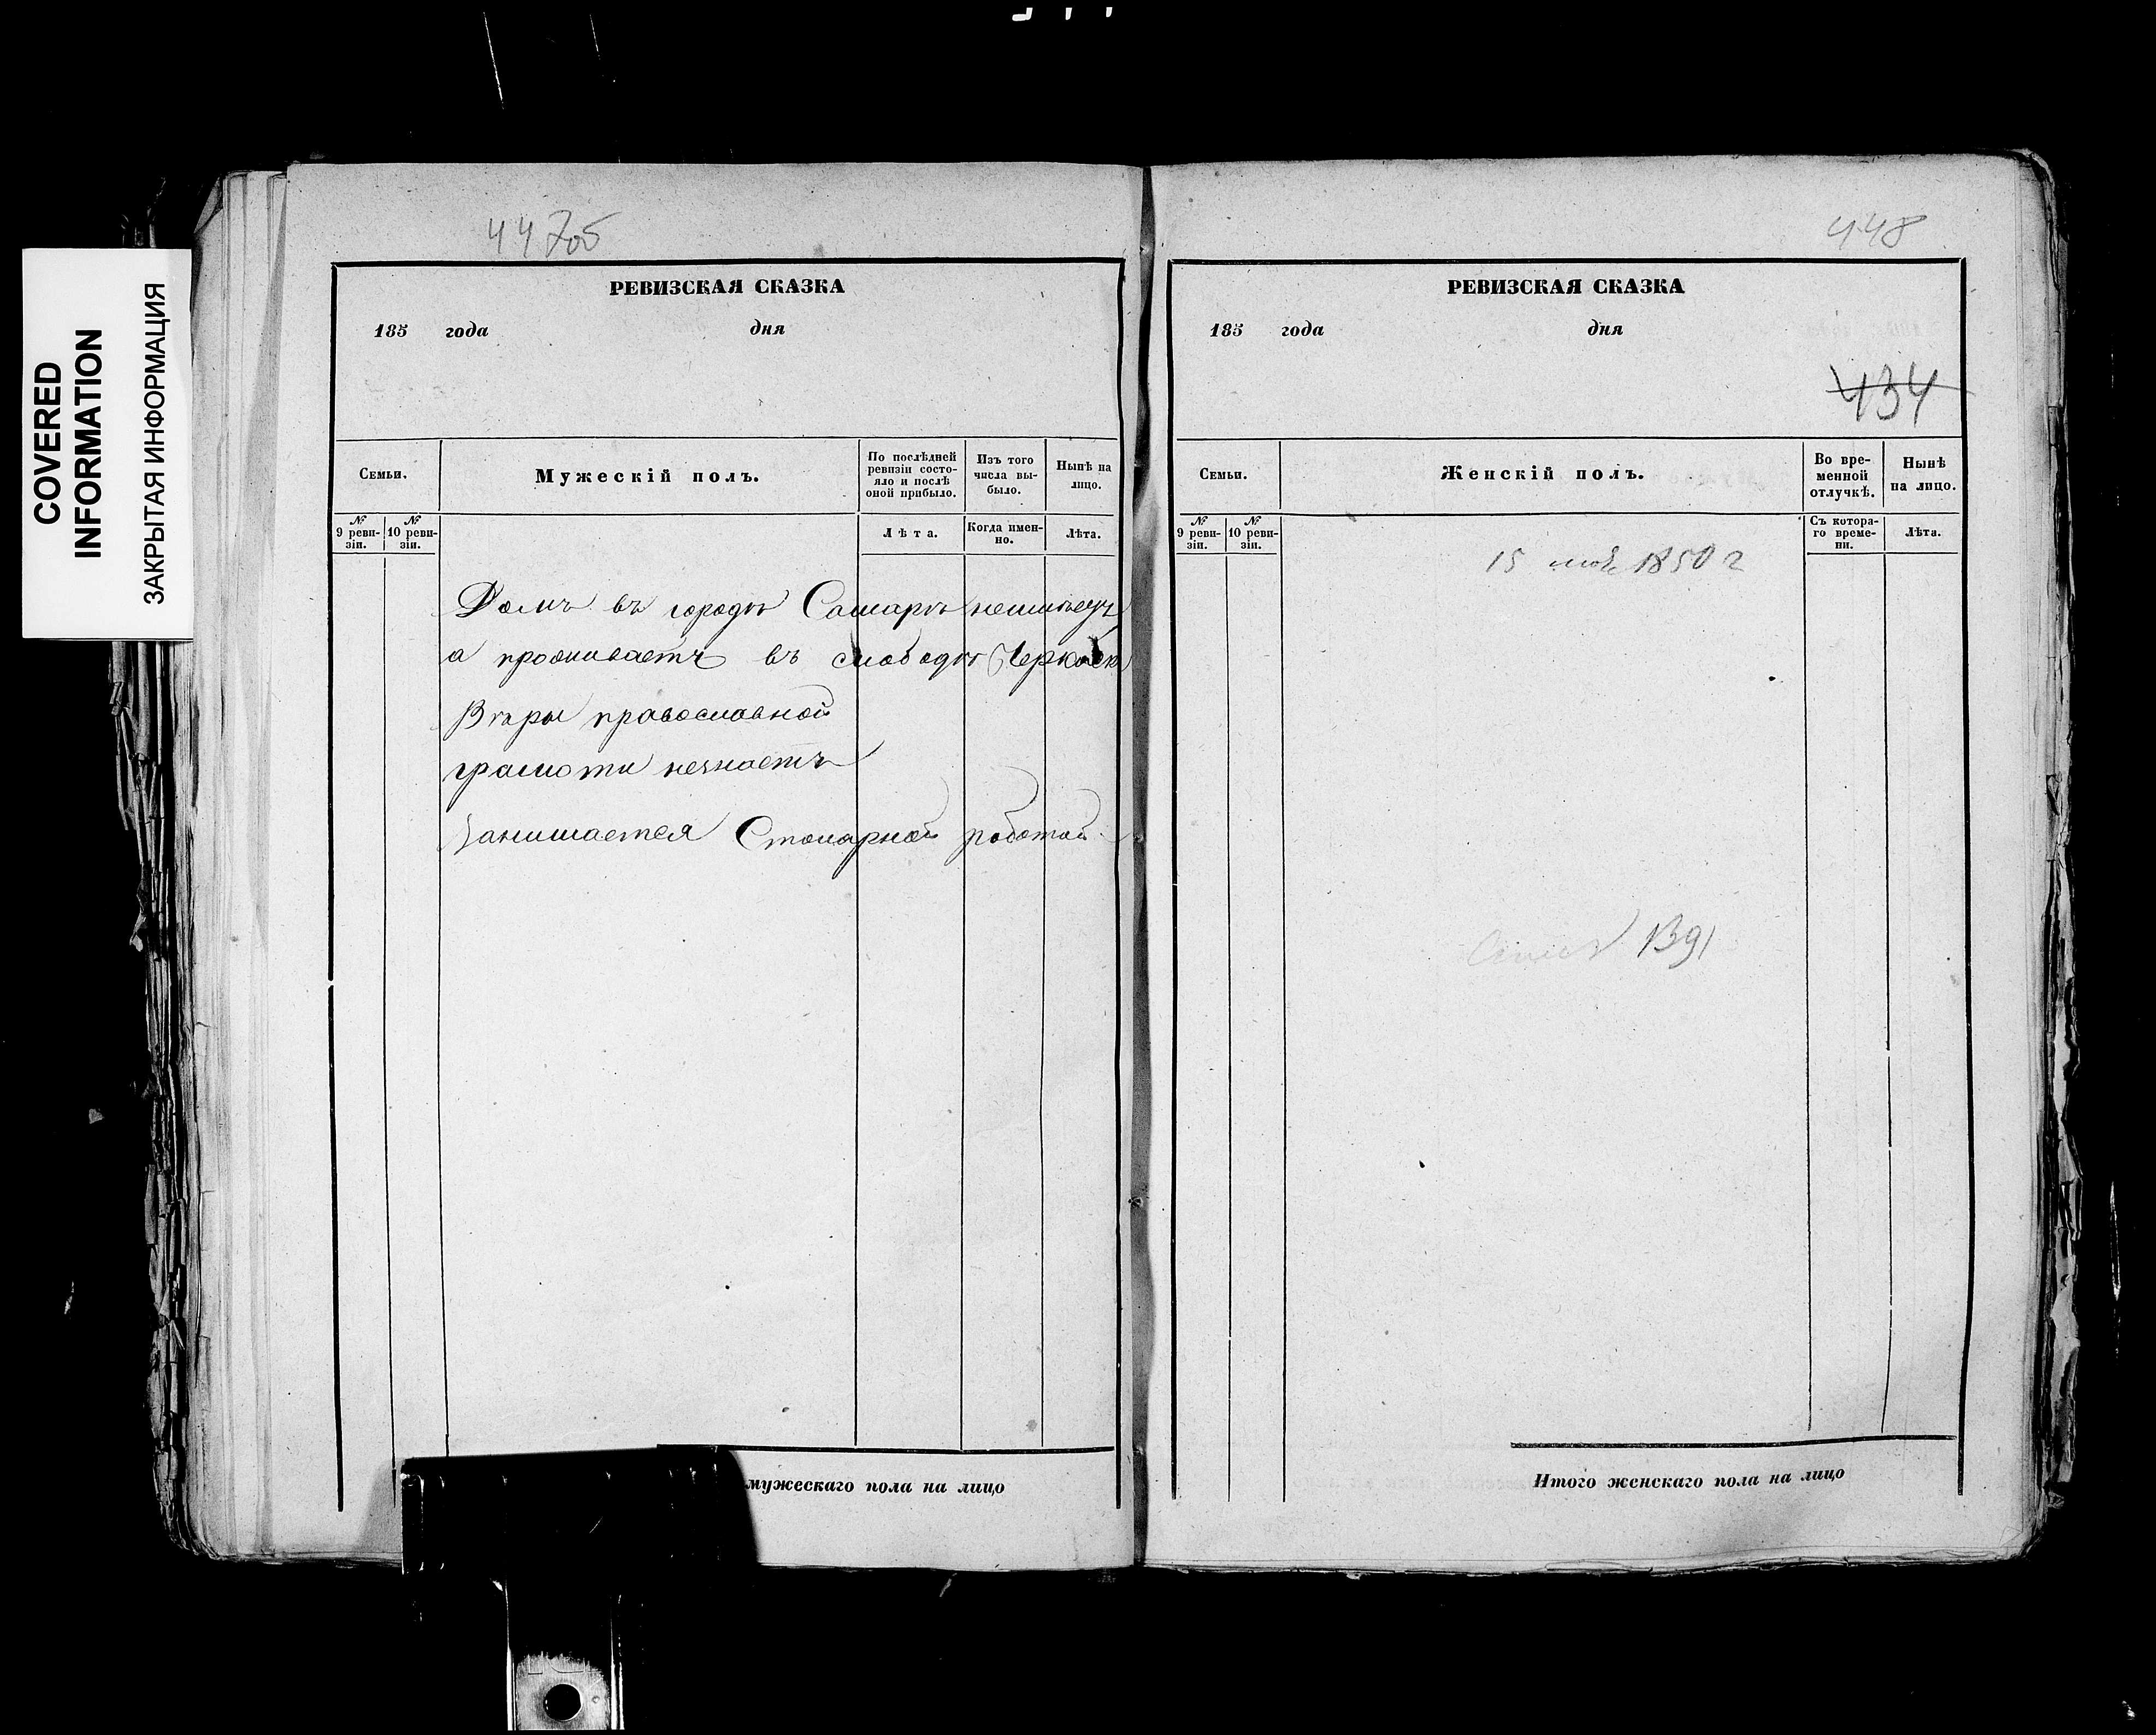 COVERED
INFORMATION
ЗАКРЫТАЯ ИНФОРМАЦИЯ
447об
РЕВИЗСКАЯ СКАЗКА
185 года дня
Семьи.
Мужескій полъ.
По послѣдней ревизіи состо-
яло и послѣ оной прибыло.
Изъ того числа вы-
было.
Нынѣ на лицо.
№ 9 реви-
зіи.
№ 10 реви-
зіи.
Лѣта.
Когда имен-
но.
Лѣта.
Домъ въ городѣ Самарѣ неимѣетъ
а проживаетъ въ слободѣ
Вѣры православной
грамоти незнаетъ
Занимается Столарной роботой
мужескаго пола на лицо
448
РЕВИЗСКАЯ СКАЗКА
185 года дня
434
Семьи.
Женскій полъ.
Во вре-
менной
отлучкѣ.
Нынѣ
на лицо.
№ 9 реви-
зіи.
№ 10 реви-
зіи.
Съ котора-
го време-
ни.
Лѣта.
15 1850 г
Итого женскаго пола на лицо